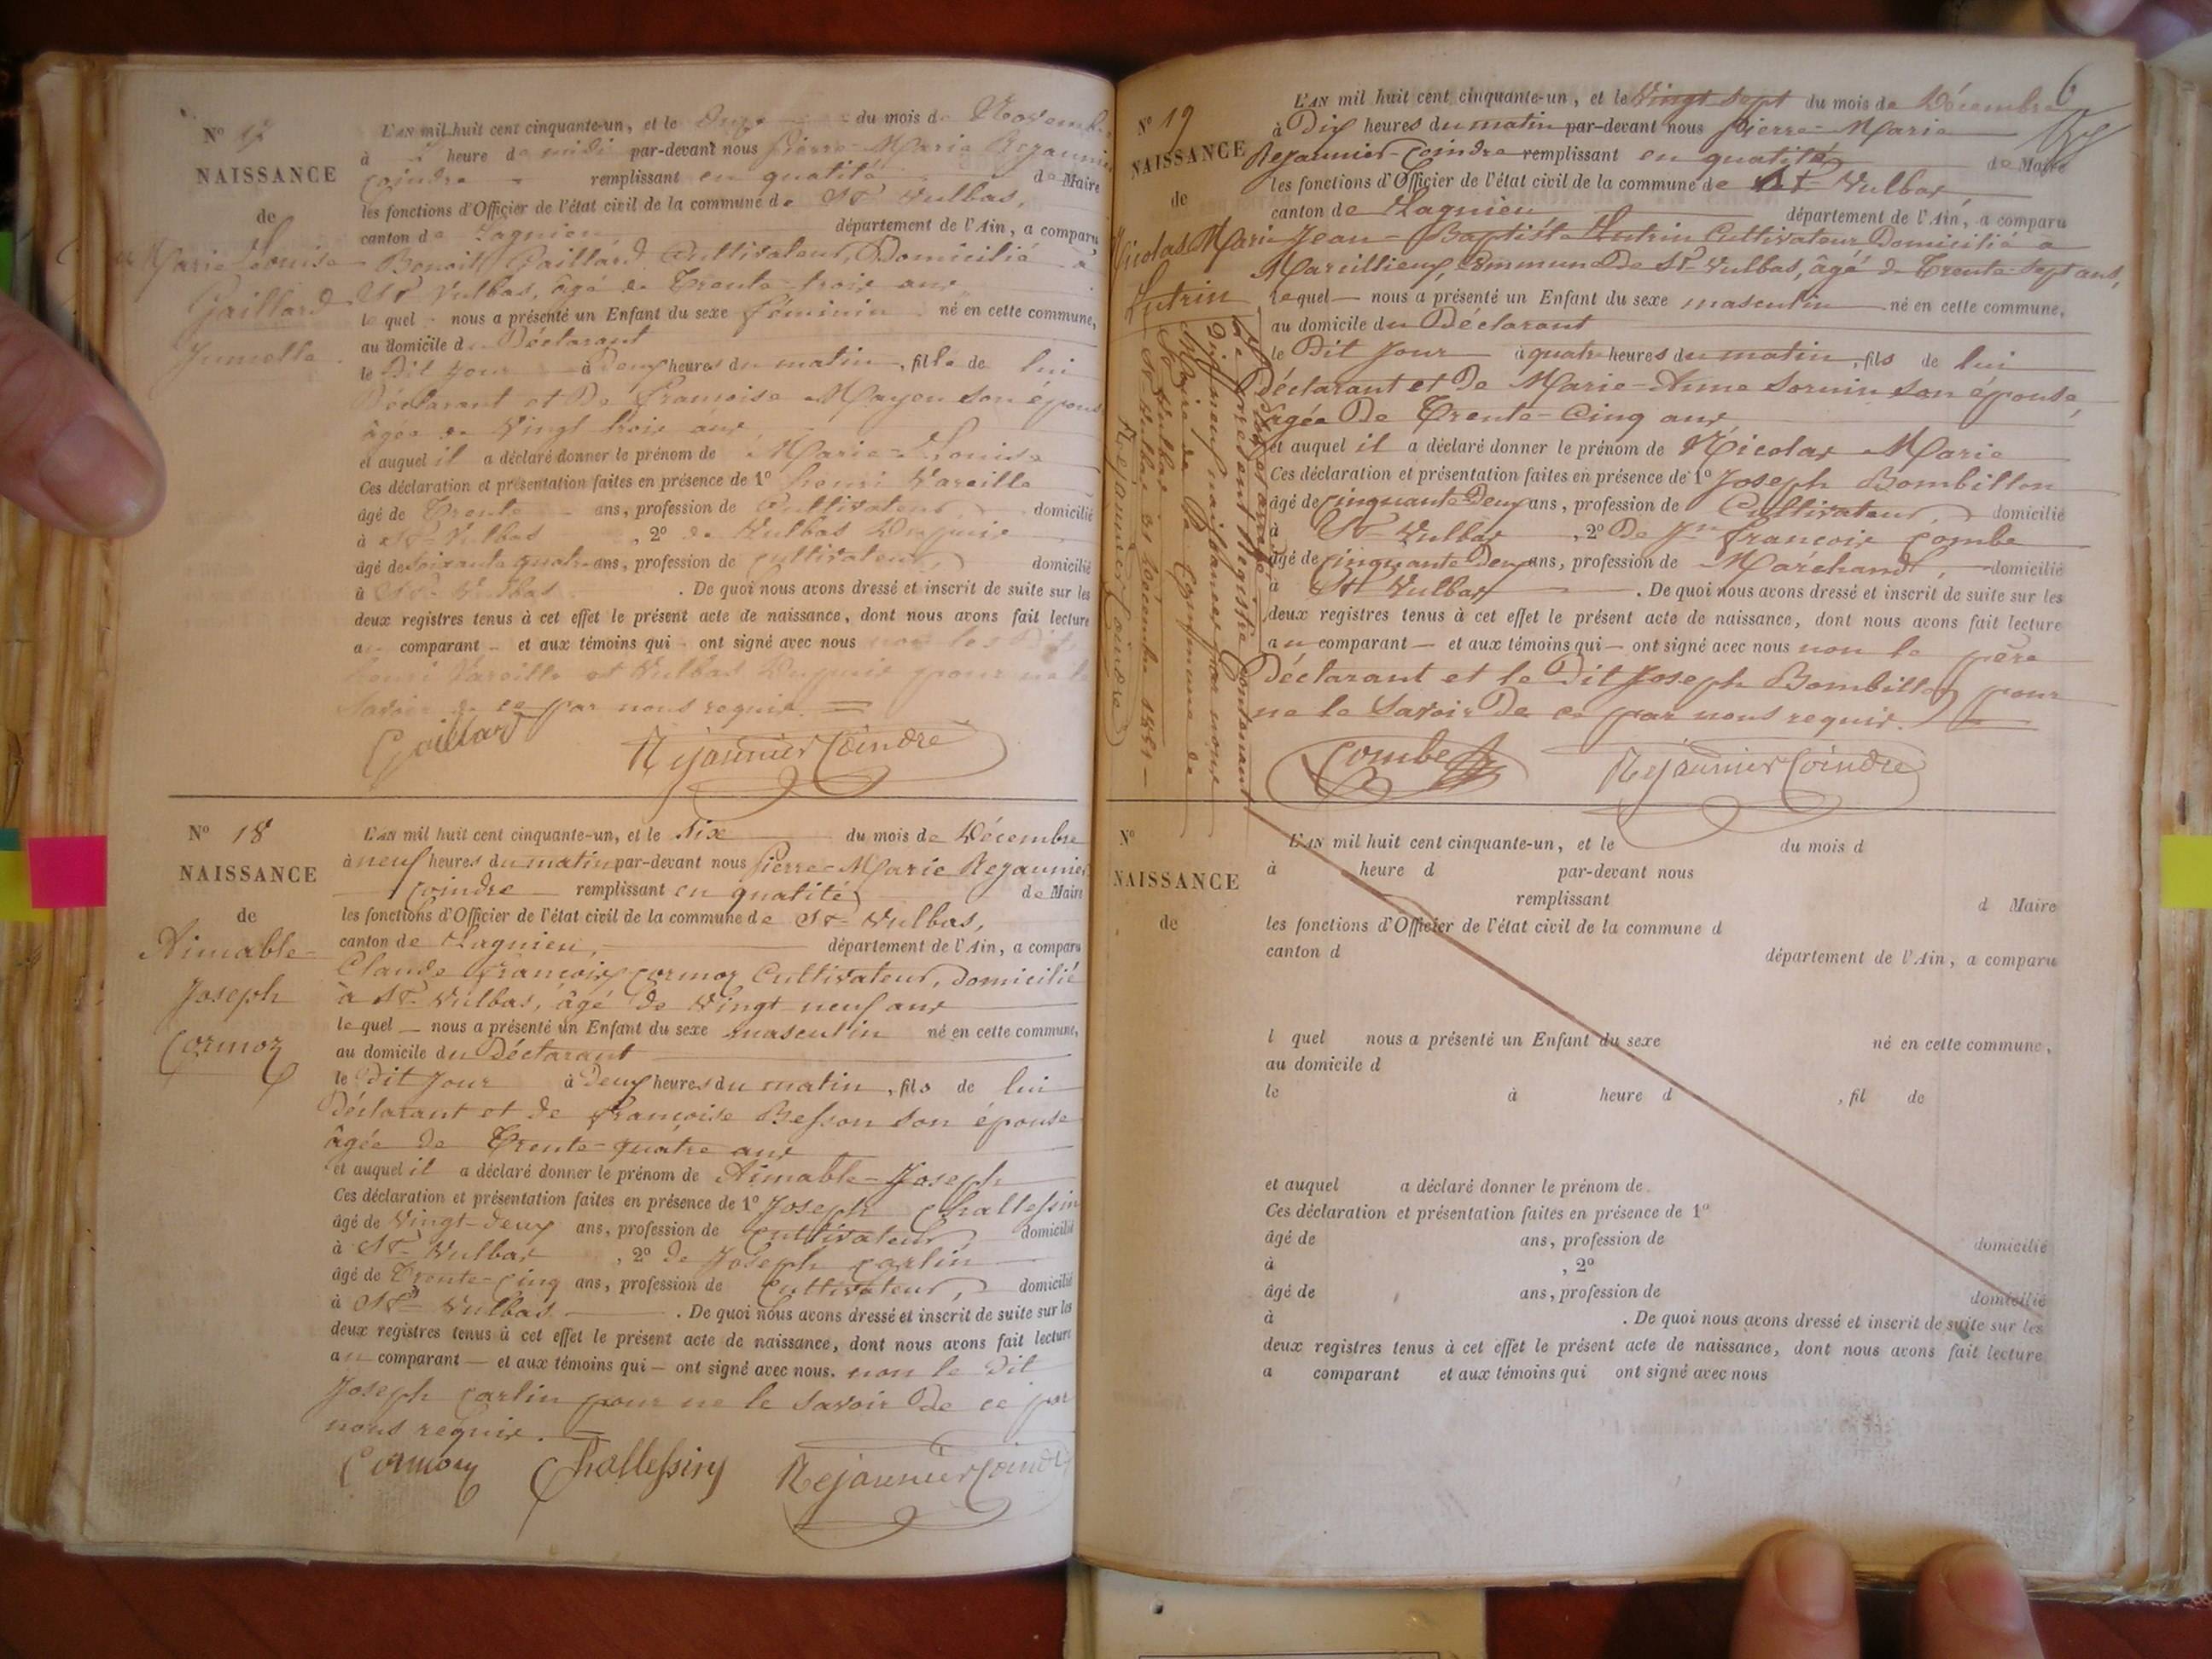 N° 17
NAISSANCE
de
Marie Louise
Gaillard
Jumelle
L'AN mil huit cent cinquante-un, et le Onze du mois de Novembre
à heure de midi par-devant nous Pierre-Marie Rejaunier
Coindre remplissant en qualité de Maire
les fonctions d'Officier de l'état civil de la commune de St Vulbas,
canton de Lagnieu département de l'Ain, a comparu
Benoit Gaillard Cultivateur, Domicilié à
St Vulbas, âgé de Trente-trois ans
le quel nous a présenté un Enfant du sexe féminin né en cette commune,
au domicile du Déclarant
le Dit jour à Deux heures du matin, fille de lui
Déclarant et De Francoise Mayeu son épouse
âgée de Vingt trois ans
et auquel il a déclaré donner le prénom de Marie-Louise
Ces déclaration et présentation faites en présence de 1° henri Vareille
âgé de Trente ans, profession de Cultivateur, domicilié
à St Vulbas , 2° de Vulbas Dupuis
âgé de Soixante quatre ans, profession de cultivateur, domicilié
à St Vulbas . De quoi nous avons dressé et inscrit de suite sur les
deux registres tenus à cet effet le présent acte de naissance, dont nous avons fait lecture
au comparant et aux témoins qui ont signé avec nous non les Dits
henri Vareille et Vulbas Dupuis pour ne le
Savoir de ce par nous requis.
Gaillard Rejaunier Coindre
N° 18
NAISSANCE
de
Aimable-
Joseph
Cormoz
L'AN mil huit cent cinquante-un, et le Six du mois de Décembre
à neuf heures du matin par-devant nous Pierre-Marie Rejaunier
Coindre remplissant en qualité de Maire
les fonctions d'Officier de l'état civil de la commune de St Vulbas,
canton de Lagnieu, département de l'Ain, a comparu
Claude François Cormoz Cultivateur, domicilié
à St Vulbas, âgé de Vingt neuf ans
le quel nous a présenté un Enfant du sexe masculin né en cette commune,
au domicile du Déclarant
le Dit Jour à Deux heures du matin, fils de lui
Déclarant et de françoise Besson son épouse
âgée de Trente-quatre ans
et auquel il a déclaré donner le prénom de Aimable-Joseph
Ces déclaration et présentation faites en présence de 1° Joseph Challessin
âgé de Vingt-deux ans, profession de cultivateur, domicilié
à St Vulbas , 2° de Joseph Carlin
âgé de Trente-Cinq ans, profession de Cultivateur, domicilié
à St Vulbas . De quoi nous avons dressé et inscrit de suite sur les
deux registres tenus à cet effet le présent acte de naissance, dont nous avons fait lecture
au comparant et aux témoins qui ont signé avec nous. non le Dit
Joseph Carlin pour ne le Savoir De ce par
nous requis.
Cormoz Challessin Rejaunier Coindre
6
N° 19
NAISSANCE
de
Nicolas Marie
Lutrin
L'AN mil huit cent cinquante-un, et le Vingt Sept du mois de Décembre
à Dix heures du matin par-devant nous Pierre-Marie
Rejaunier-Coindre remplissant en qualité de Maire
les fonctions d'Officier de l'état civil de la commune de St Vulbas
canton de Lagnieu département de l'Ain, a comparu
Jean-Baptiste Lutrin Cultivateur Domicilié a
Marcillieux, Commune De St Vulbas, âgé de Trente-Sept ans,
lequel nous a présenté un Enfant du sexe masculin né en cette commune,
au domicile du Déclarant
le Dit Jour à quatre heures du matin, fils de lui
Déclarant et De Marie-Anne Sornin son épouse,
âgée De Trente-Cinq ans
et auquel il a déclaré donner le prénom de Nicolas Marie
Ces déclaration et présentation faites en présence de 1° Joseph Bombillon
âgé de Cinquante Deux ans, profession de Cultivateur, domicilié
à St Vulbas , 2° De Jn François Combe
âgé de Cinquante Deux ans, profession de Maréchand, domicilié
à St Vulbas . De quoi nous avons dressé et inscrit de suite sur les
deux registres tenus à cet effet le présent acte de naissance, dont nous avons fait lecture
au comparant et aux témoins qui ont signé avec nous non le père
Déclarant et le Dit Joseph Bombillon pour
ne le Savoir De ce par nous requis.
Combe Rejaunier Coindre
Clos et arrêté
Le présent Registre Contenant
Dix neuf naissances par nous
Maire de la Commune de
St Vulbas
St Vulbas 31 Décembre 1851
Rejaunier Coindre
N°
NAISSANCE
de
L'AN mil huit cent cinquante-un, et le du mois d
à heure d par-devant nous
remplissant d Maire
les fonctions d'Officier de l'état civil de la commune d
canton d département de l'Ain, a comparu
l quel nous a présenté un Enfant du sexe né en cette commune,
au domicile d
le à heure d , fil de
et auquel a déclaré donner le prénom de
Ces déclaration et présentation faites en présence de 1°
âgé de ans, profession de domicilié
à , 2°
âgé de ans, profession de domicilié
à . De quoi nous avons dressé et inscrit de suite sur les
deux registres tenus à cet effet le présent acte de naissance, dont nous avons fait lecture
a comparant et aux témoins qui ont signé avec nous